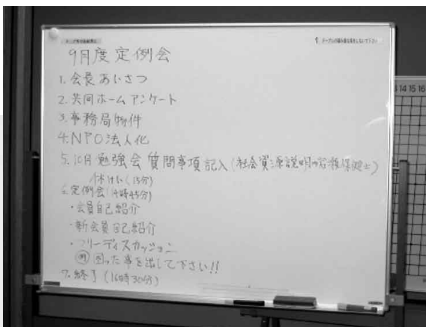 9月度定例会
1.会長あいさつ
2.共同ホームアンケート
3.事務局物件
4.NPO法人化
5.10月勉強会質問事項記入(社会資源説明の
休けい(15分)
6.定例会(14時45分)
・会員自己紹介
・新会員自己紹介
・フリーディスカッション
困った事を出して下さい!!
7.終了(16時30分)